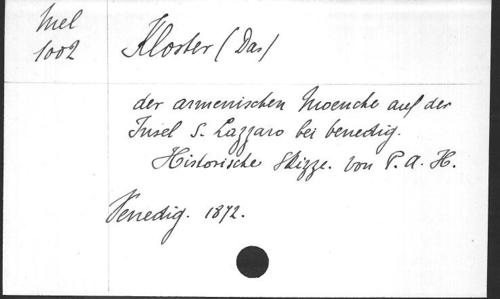 Mel
1002
Kloster (Das)
der armenischen Moenche auf der
Insel S. Lazzaro bei Venedig.
Historische Skizze. Von P. A. H.
Venedig. 1872.